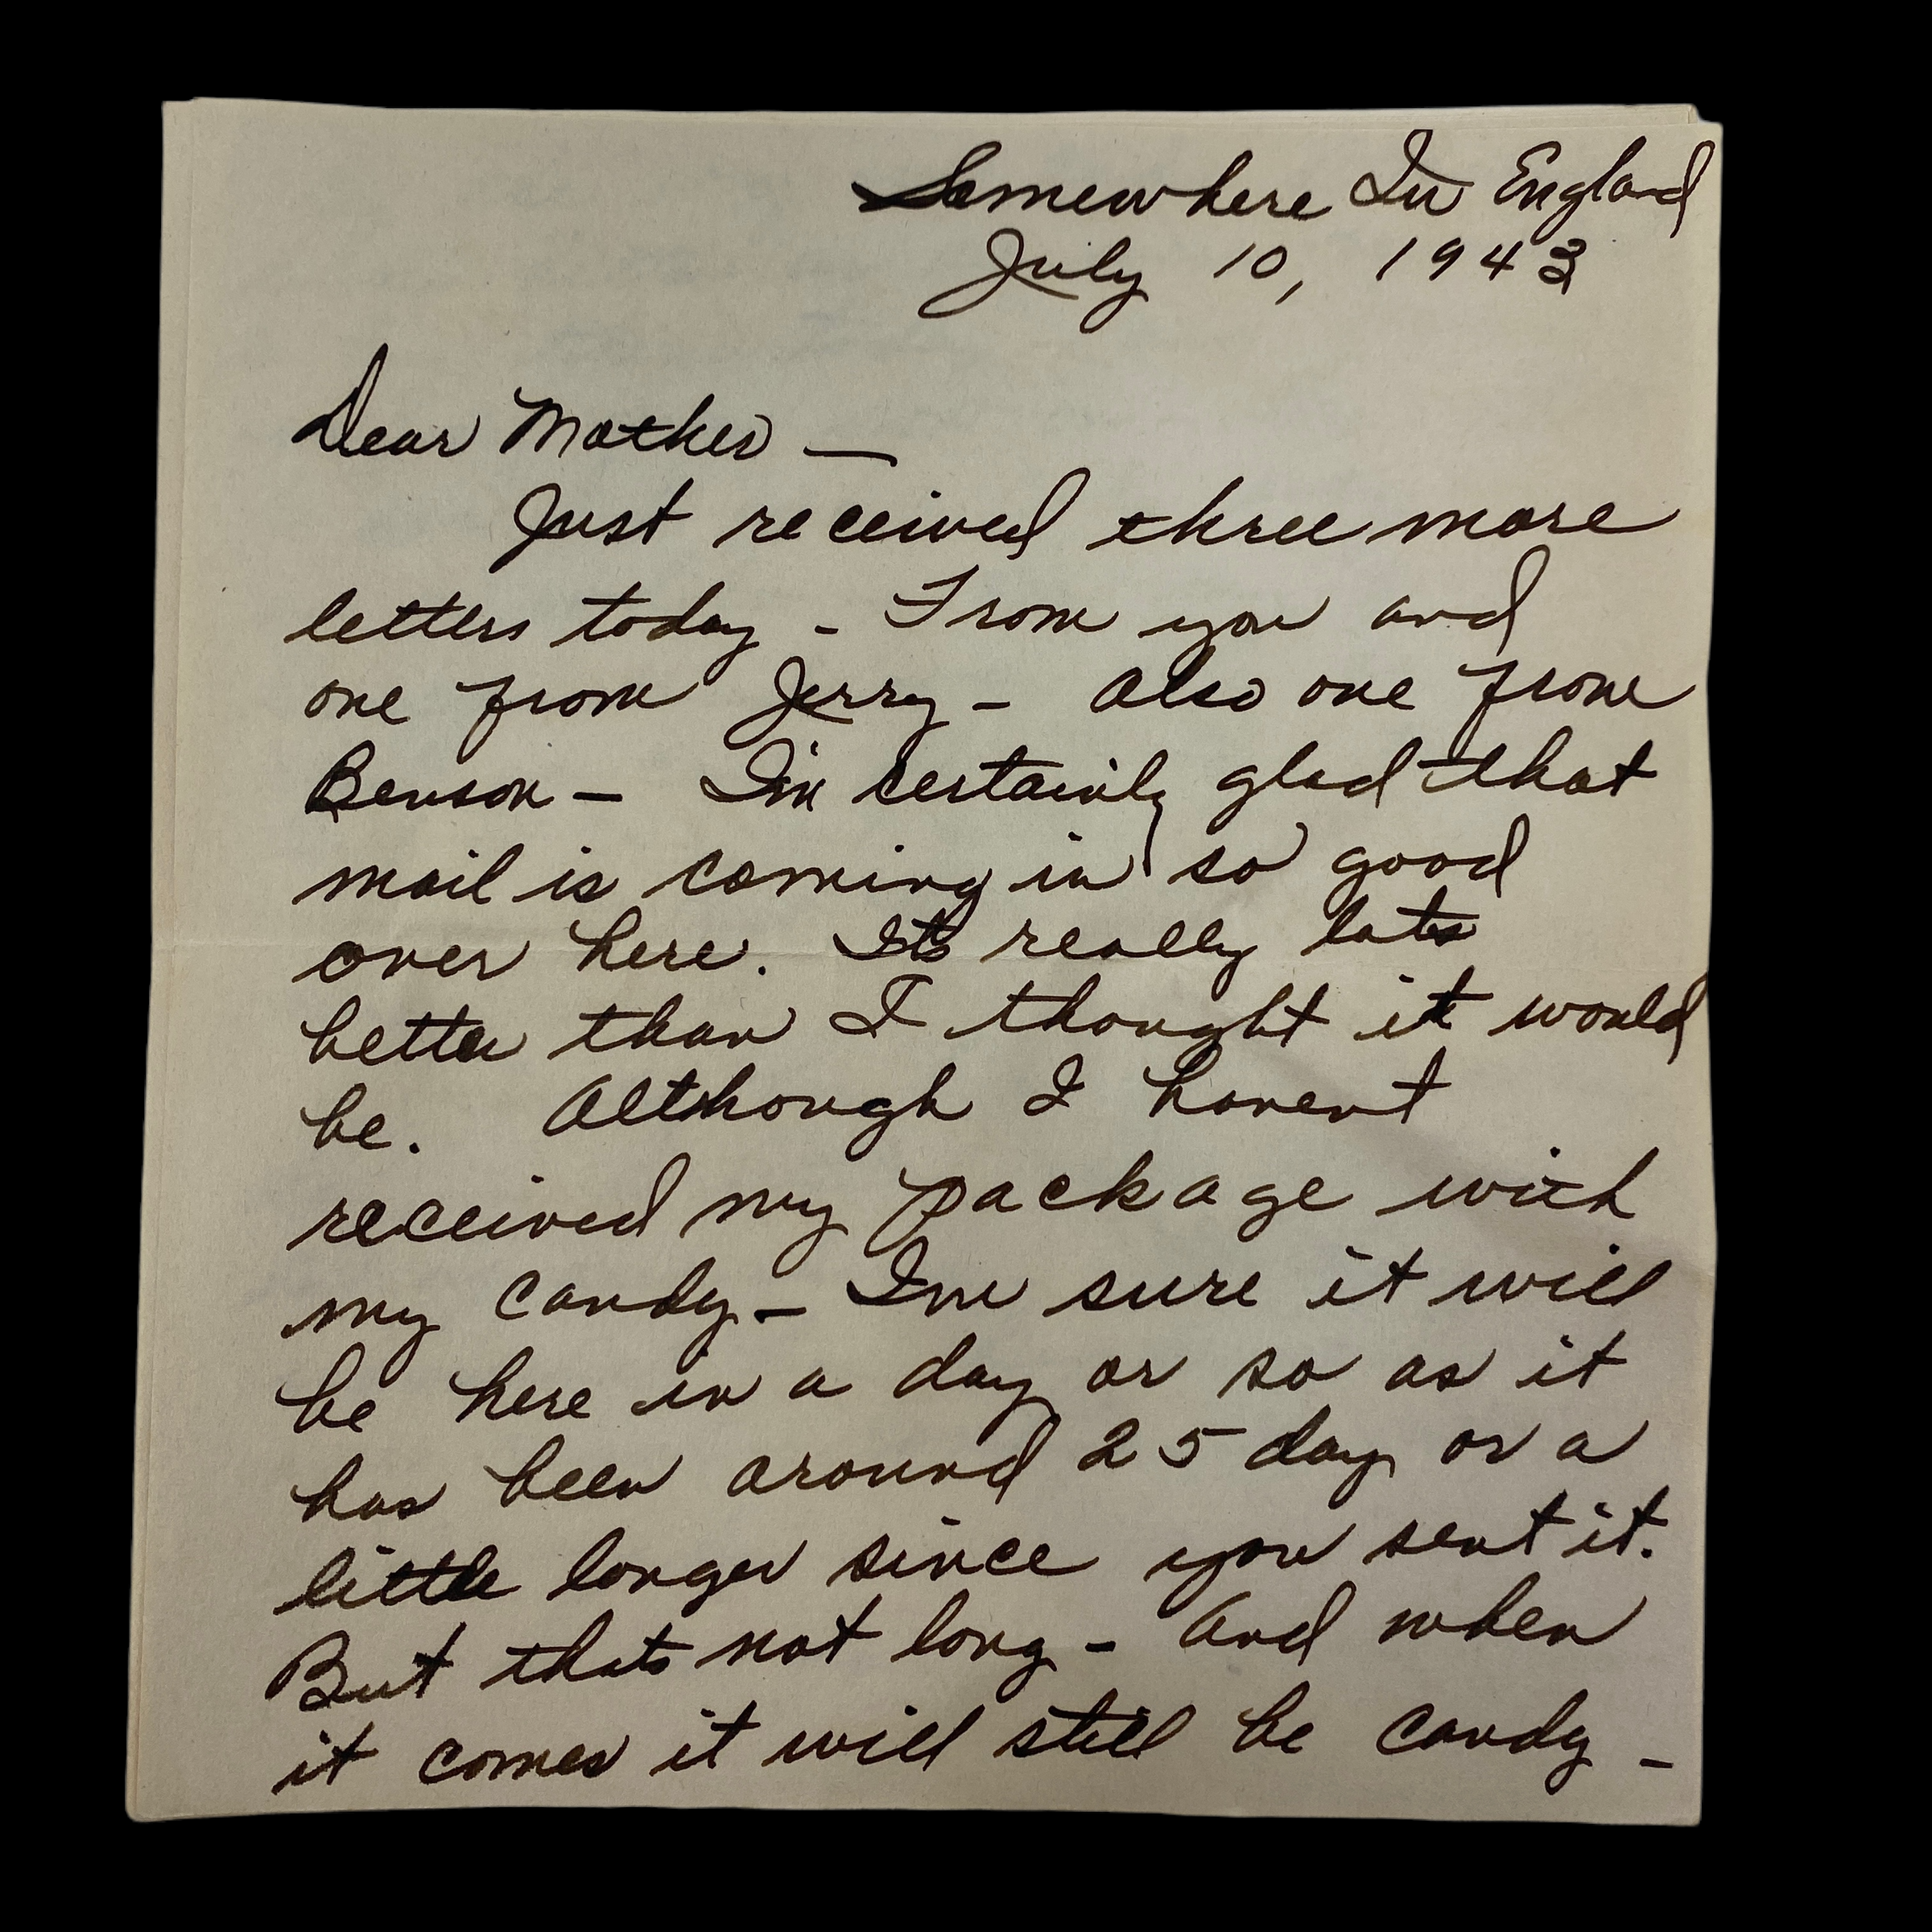 Somewhere In England
July 10, 1943
Dear Mother —
Just received three more
letters today - From you and
one from Jerry - Also one from
Benson - I'm certainly glad that
mail is coming in so good
over here. Its really lots
better than I thought it would
be. Although I havent
received my package with
my candy - Im sure it will
be here in a day or so as it
has been around 25 day or a
little longer since you sent it.
But thats not long - And when
it comes it will still be candy -